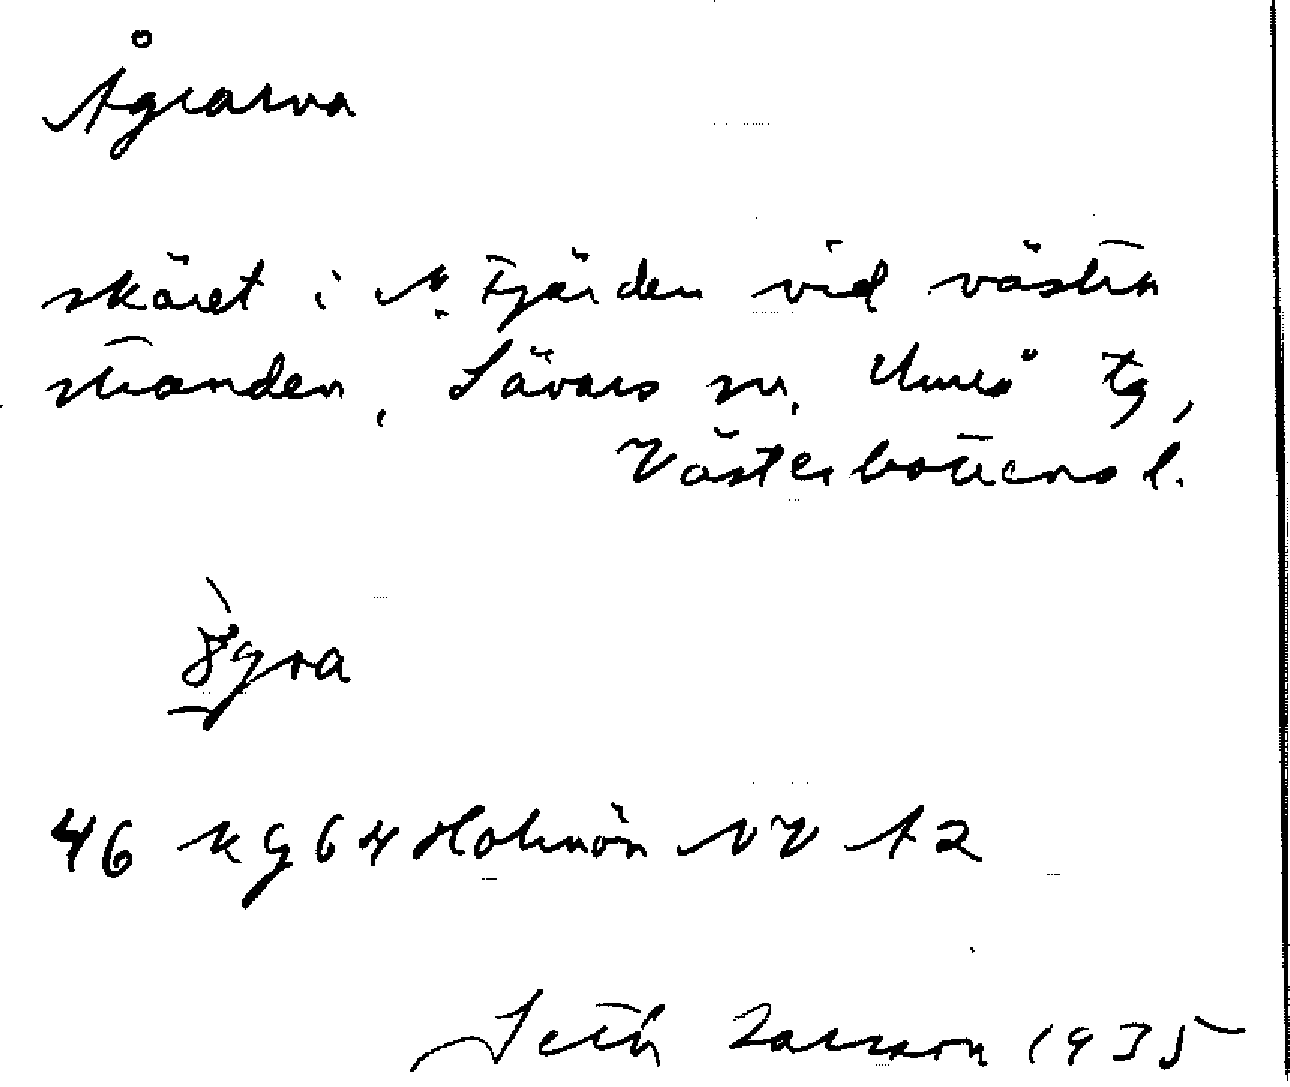 Ågrarna
skäret i N. Fjärden vid västra
stranden, Sävars sn, Umeå tg,
Västerbottens l.
46 Kg 64 Holmön NV A2
Seth Larsson 1935